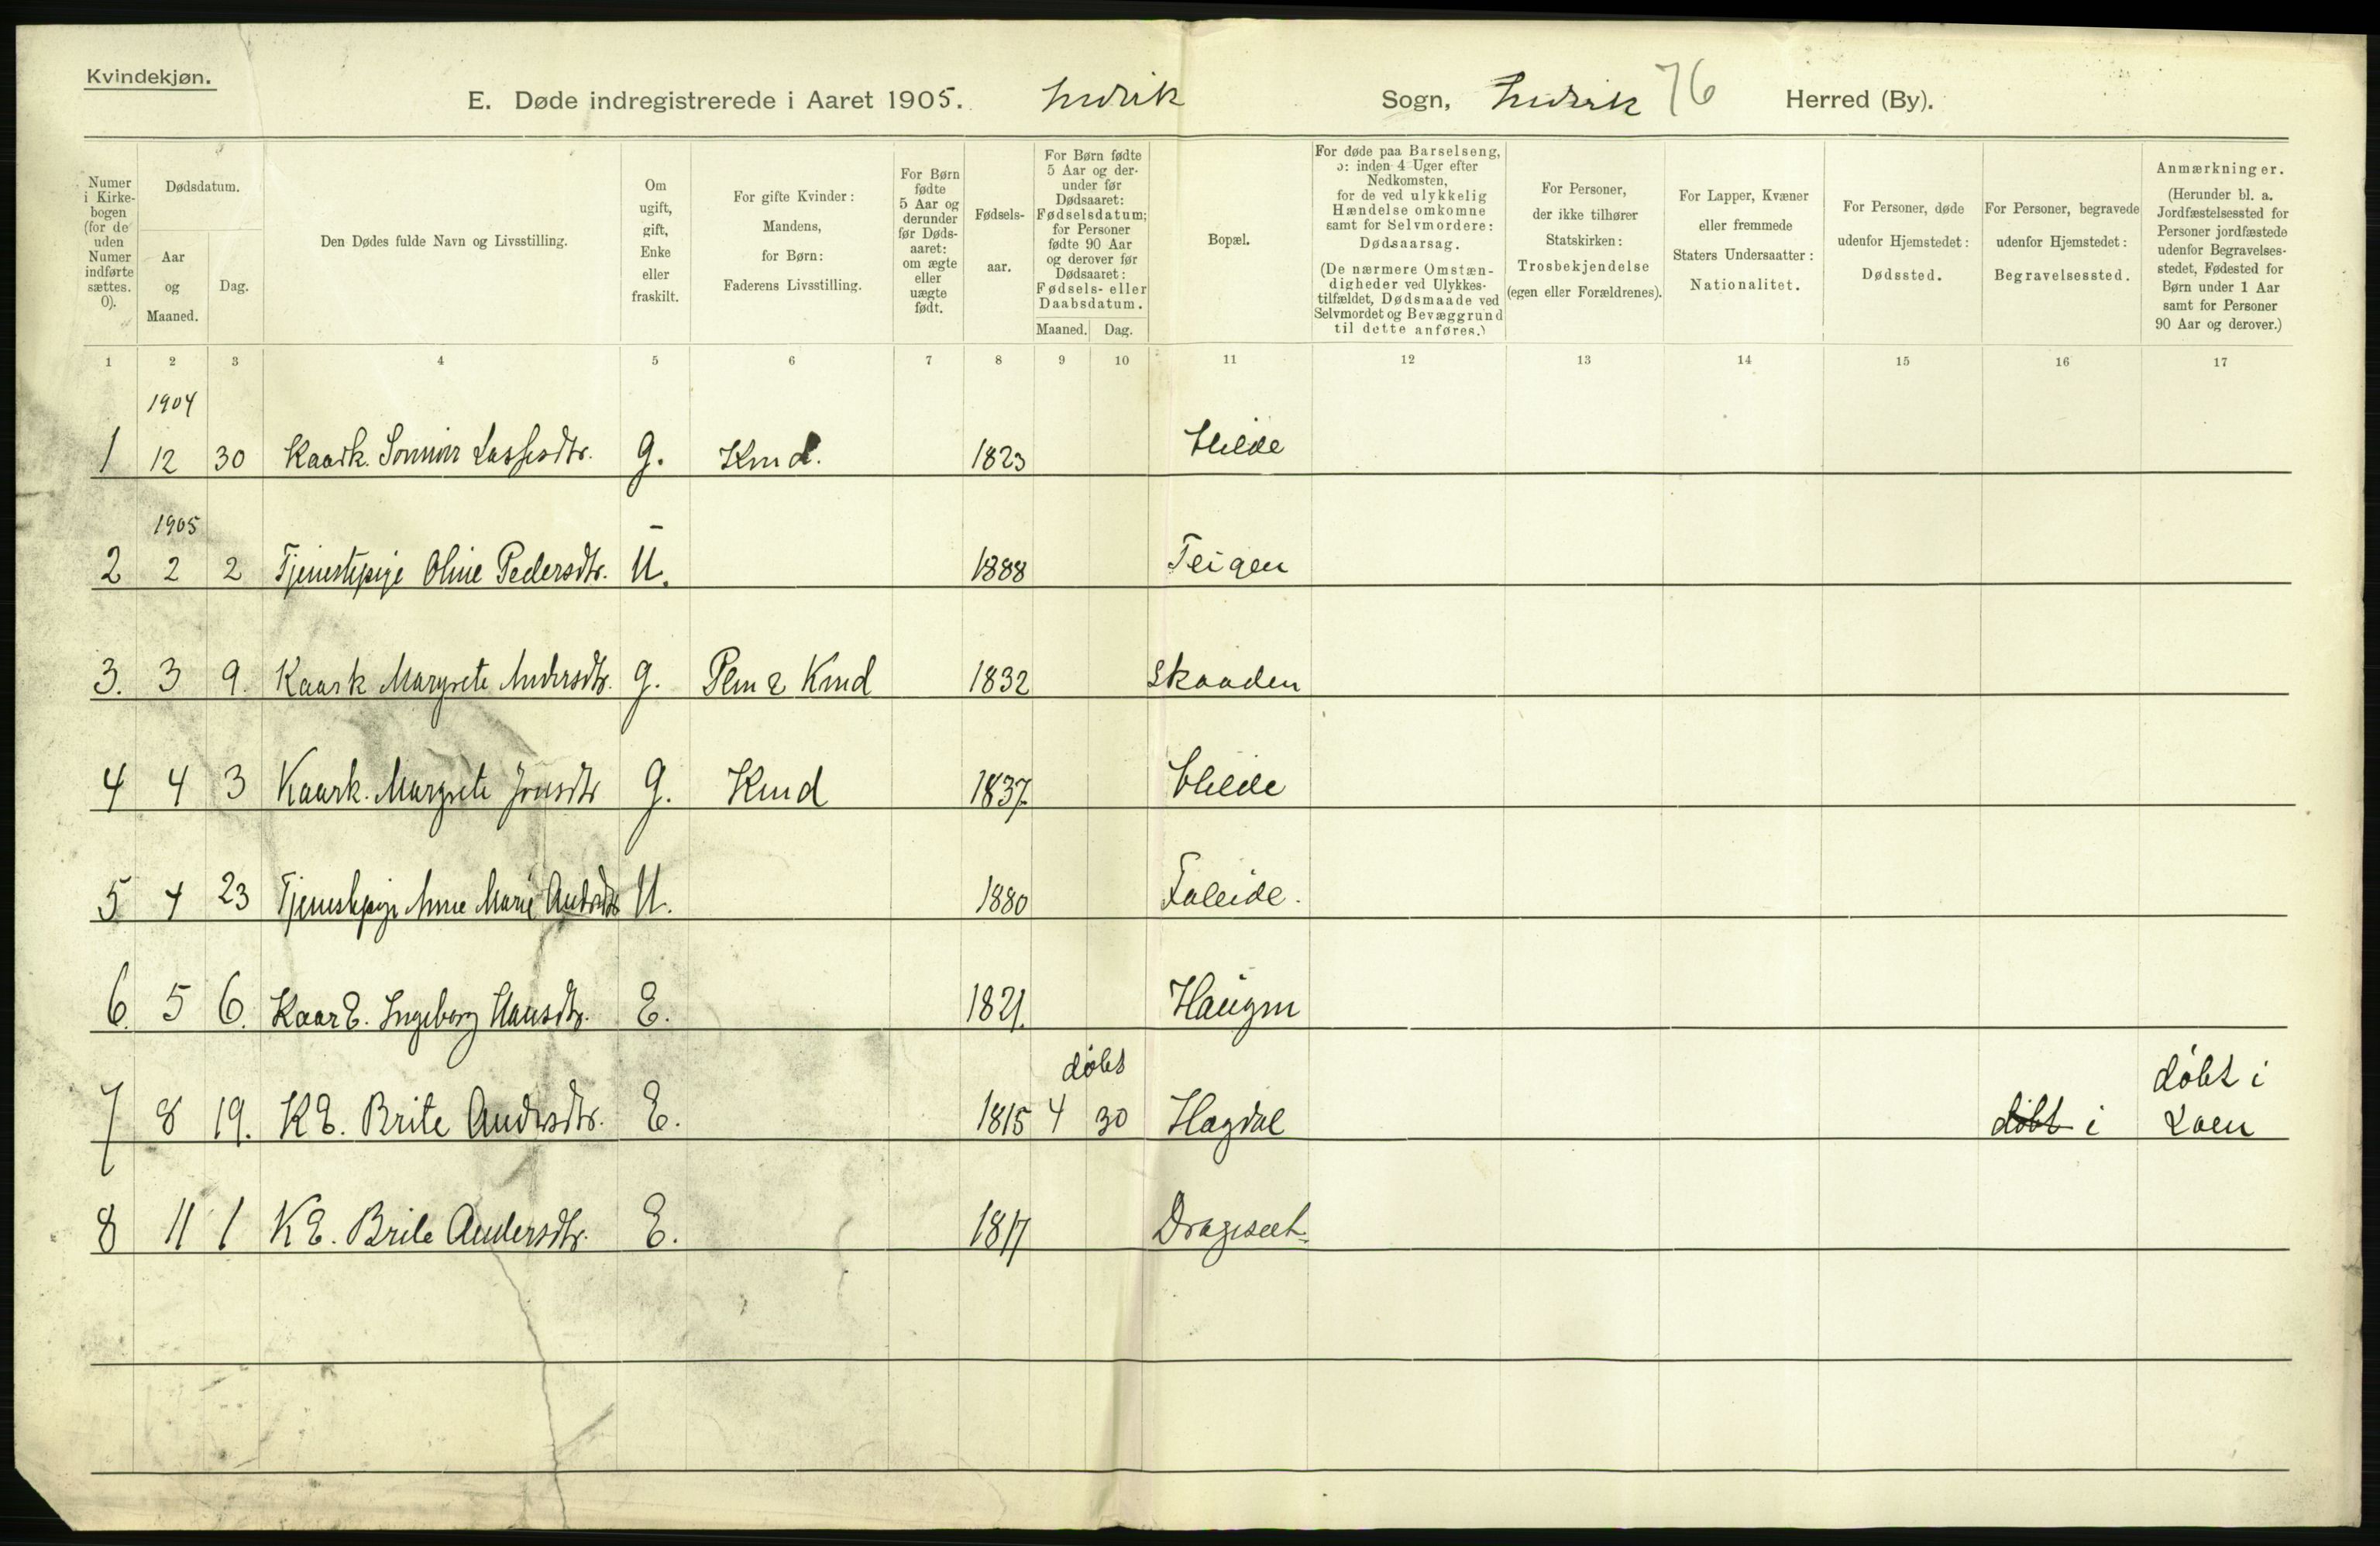 Kvindekjøn.
E. Døde indregistrerede i Aaret 1905. Indvik Sogn, Indvik 76 Herred (By).
Numer i Kirkebogen (for de uden Numer indførte sættes. 0).
Dødsdatum.
Aar og Maaned.
Dag.
Den Dødes fulde Navn og Livsstilling.
Om ugift, gift, Enke eller fraskilt.
For gifte Kvinder: Mandens, for Børn: Faderens Livsstilling.
For Børn fødte 5 Aar og derunder før Dødsaaret: om ægte eller uægte født.
Fødselsaar.
For Børn fødte 5 Aar og derunder før Dødsaaret: Fødselsdatum; for Personer fødte 90 Aar og derover før Dødsaaret: Fødsels- eller Daabsdatum.
Maaned. Dag.
Bopæl.
For døde paa Barselseng, ɔ: inden 4 Uger efter Nedkomsten, for de ved ulykkelig Hændelse omkomne samt for Selvmordere: Dødsaarsag. (De nærmere Omstændigheder ved Ulykkestilfældet, Dødsmaade ved Selvmordet og Bevæggrund til dette anføres.)
For Personer, der ikke tilhører Statskirken: Trosbekjendelse (egen eller Forældrenes).
For Lapper, Kvæner eller fremmede Staters Undersaatter: Nationalitet.
For Personer, døde udenfor Hjemstedet: Dødssted.
For Personer, begravede udenfor Hjemstedet: Begravelsessted.
Anmærkninger. (Herunder bl. a. Jordfæstelsessted for Personer jordfæstede udenfor Begravelsesstedet, Fødested for Børn under 1 Aar samt for Personer 90 Aar og derover.)
1 2 3 4 5 6 7 8 9 10 11 12 13 14 15 16 17
1904
1 12 30 Kaark. Lassesdtr. g. Kmd. 1823 Hilde
1905
2 2 2 Tjenestepige Oline Pedersdtr. U. 1888 Teigen
3. 3 9. Kaark Margrete Andersdtr. g. Kmd 1832 Skaaden
4 4 3 Kaark. Margrete Jonsdtr g. Kmd 1837 Hilde
5 4 23 Tjenestepige Anne Marie Andersdtr U. 1880 Faleide.
6. 5 6. Kaar E. Ingeborg Hansdtr. E. 1821. Haugen
døbt
døbt i
7 8 19. K E. Brite Andersdtr. E. 1815 4 30 Hagdal døbt i Loen
8 11 1 K E. Brite Andersdtr. E. 1817 Drageset.